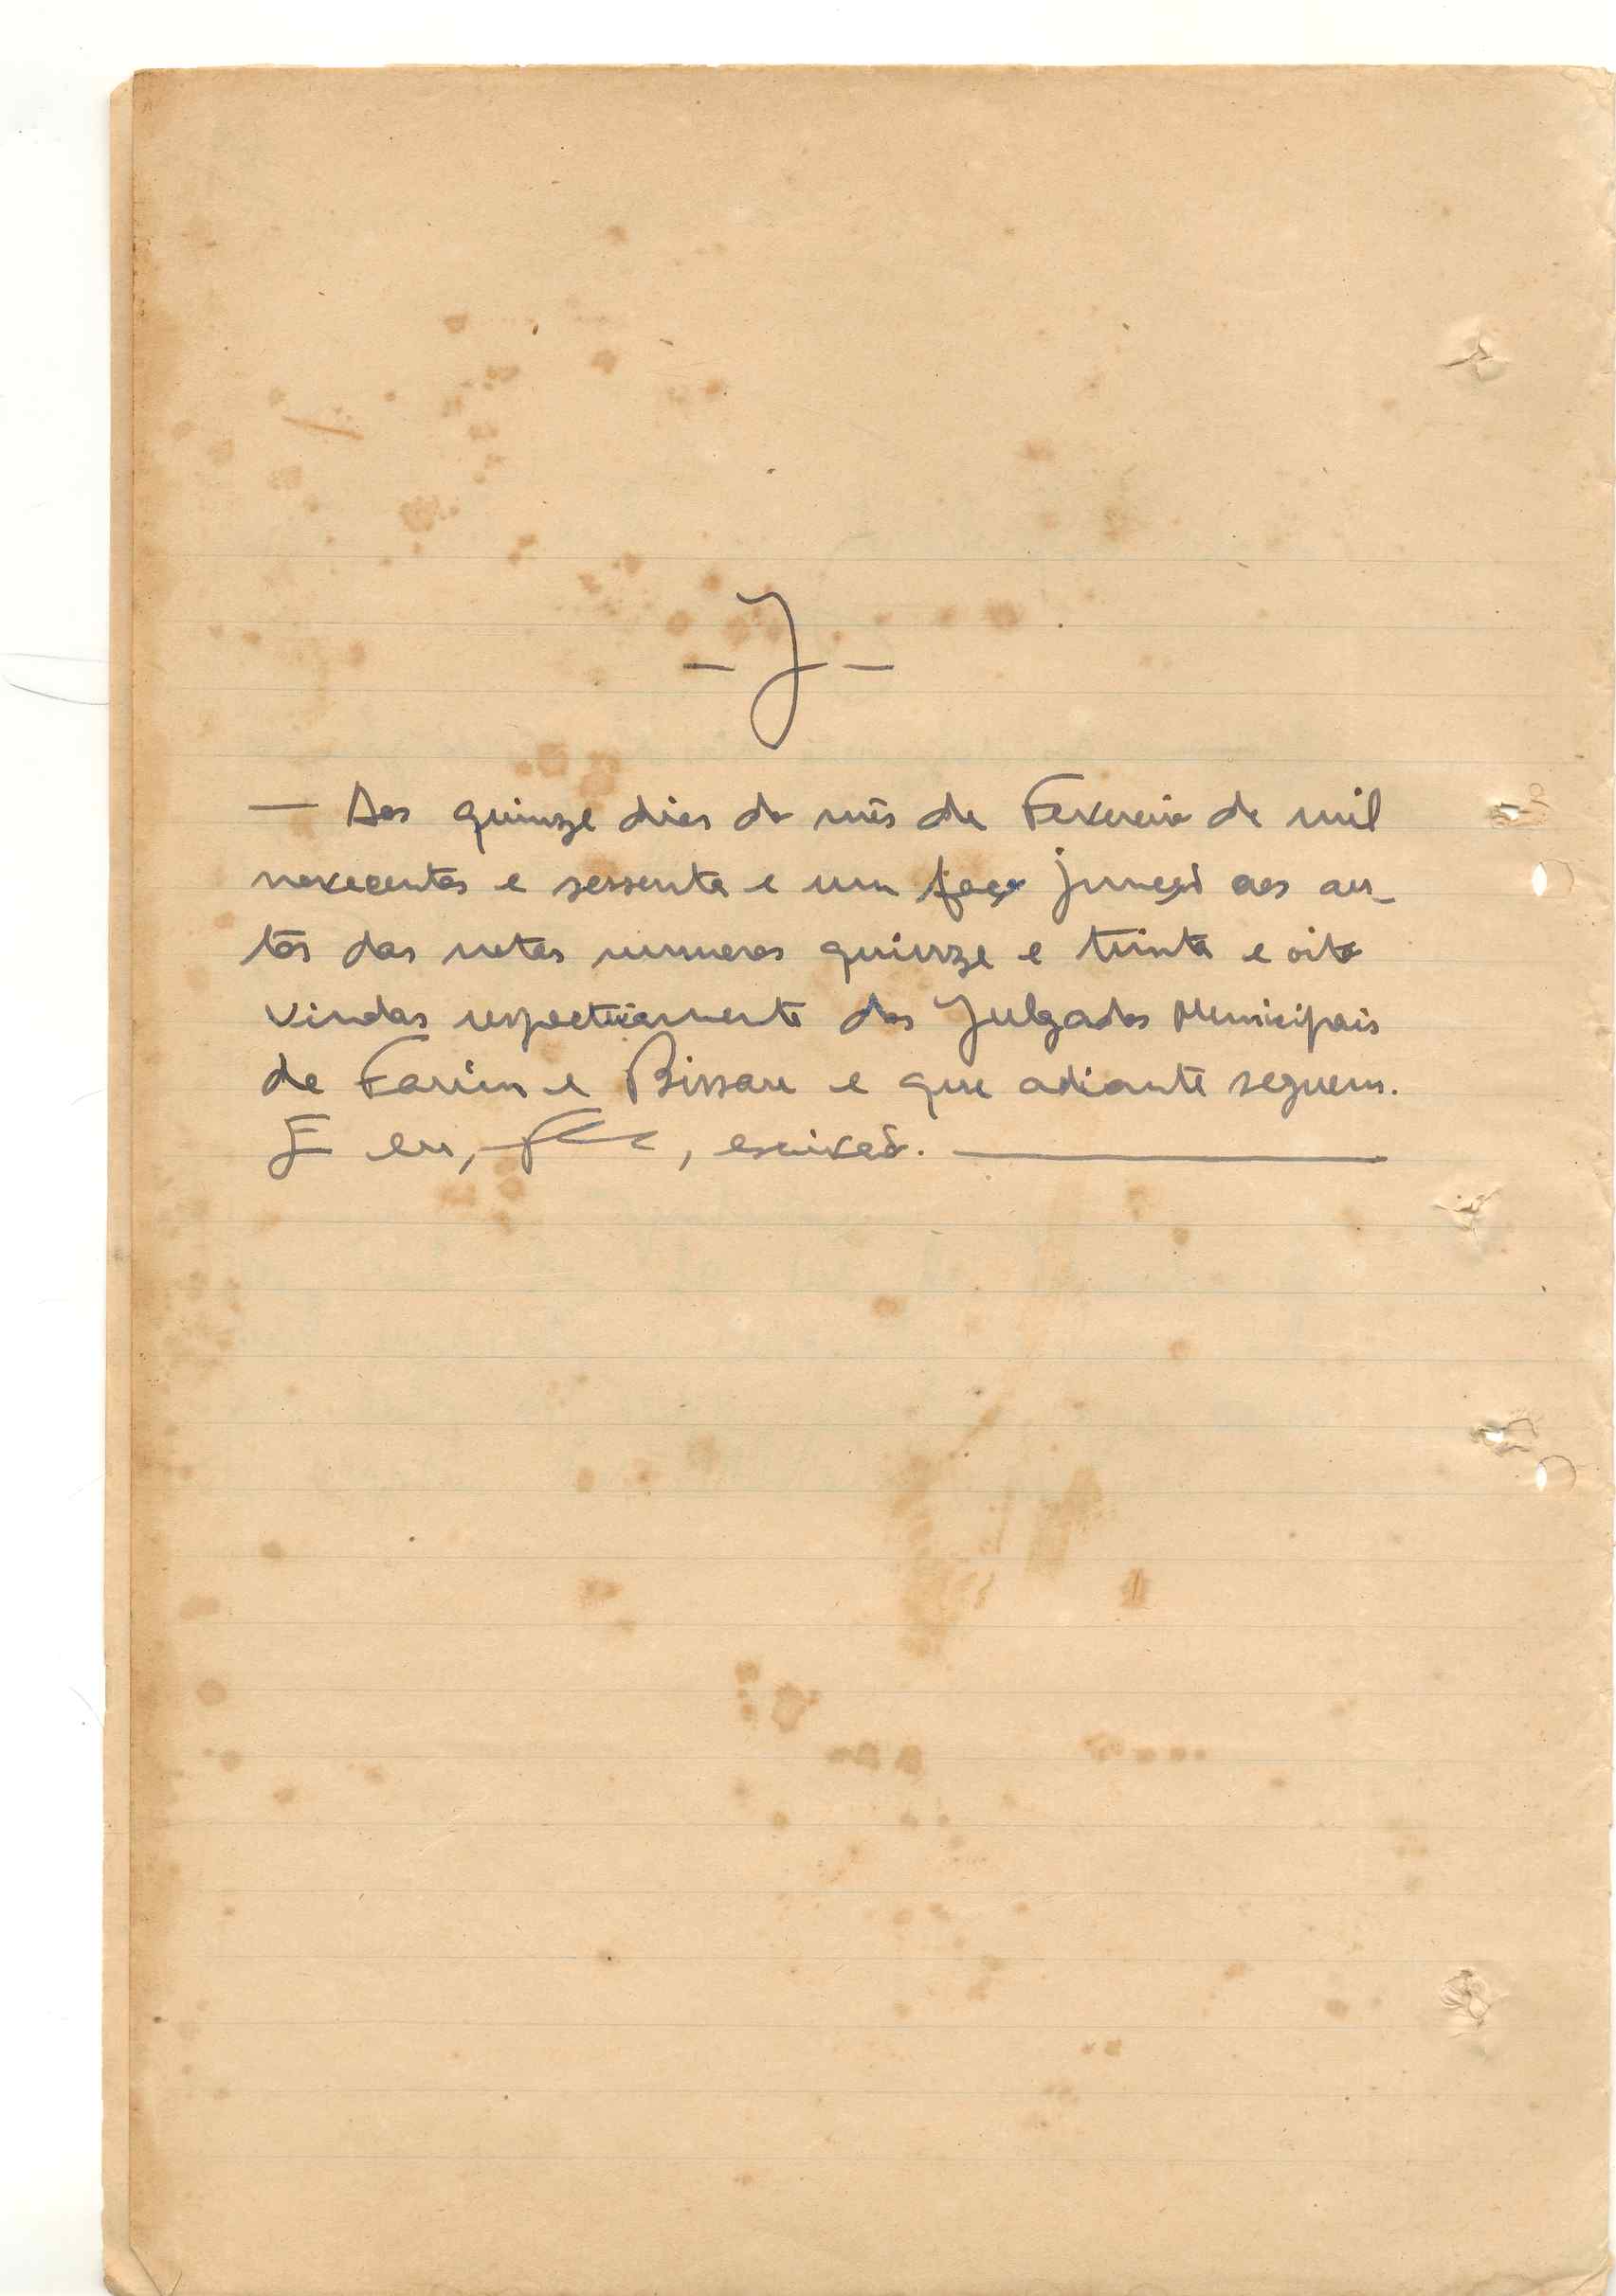 - J -
— Aos quinze dias do mês de Fevereiro de mil
novecentos e sessenta e um faço junção aos au-
tos das notas numeros quinze e trinta e oito
vindas respectivamente dos Julgados Municipais
de Farim e Bissau e que adiante seguem.
E eu, , escrivão.